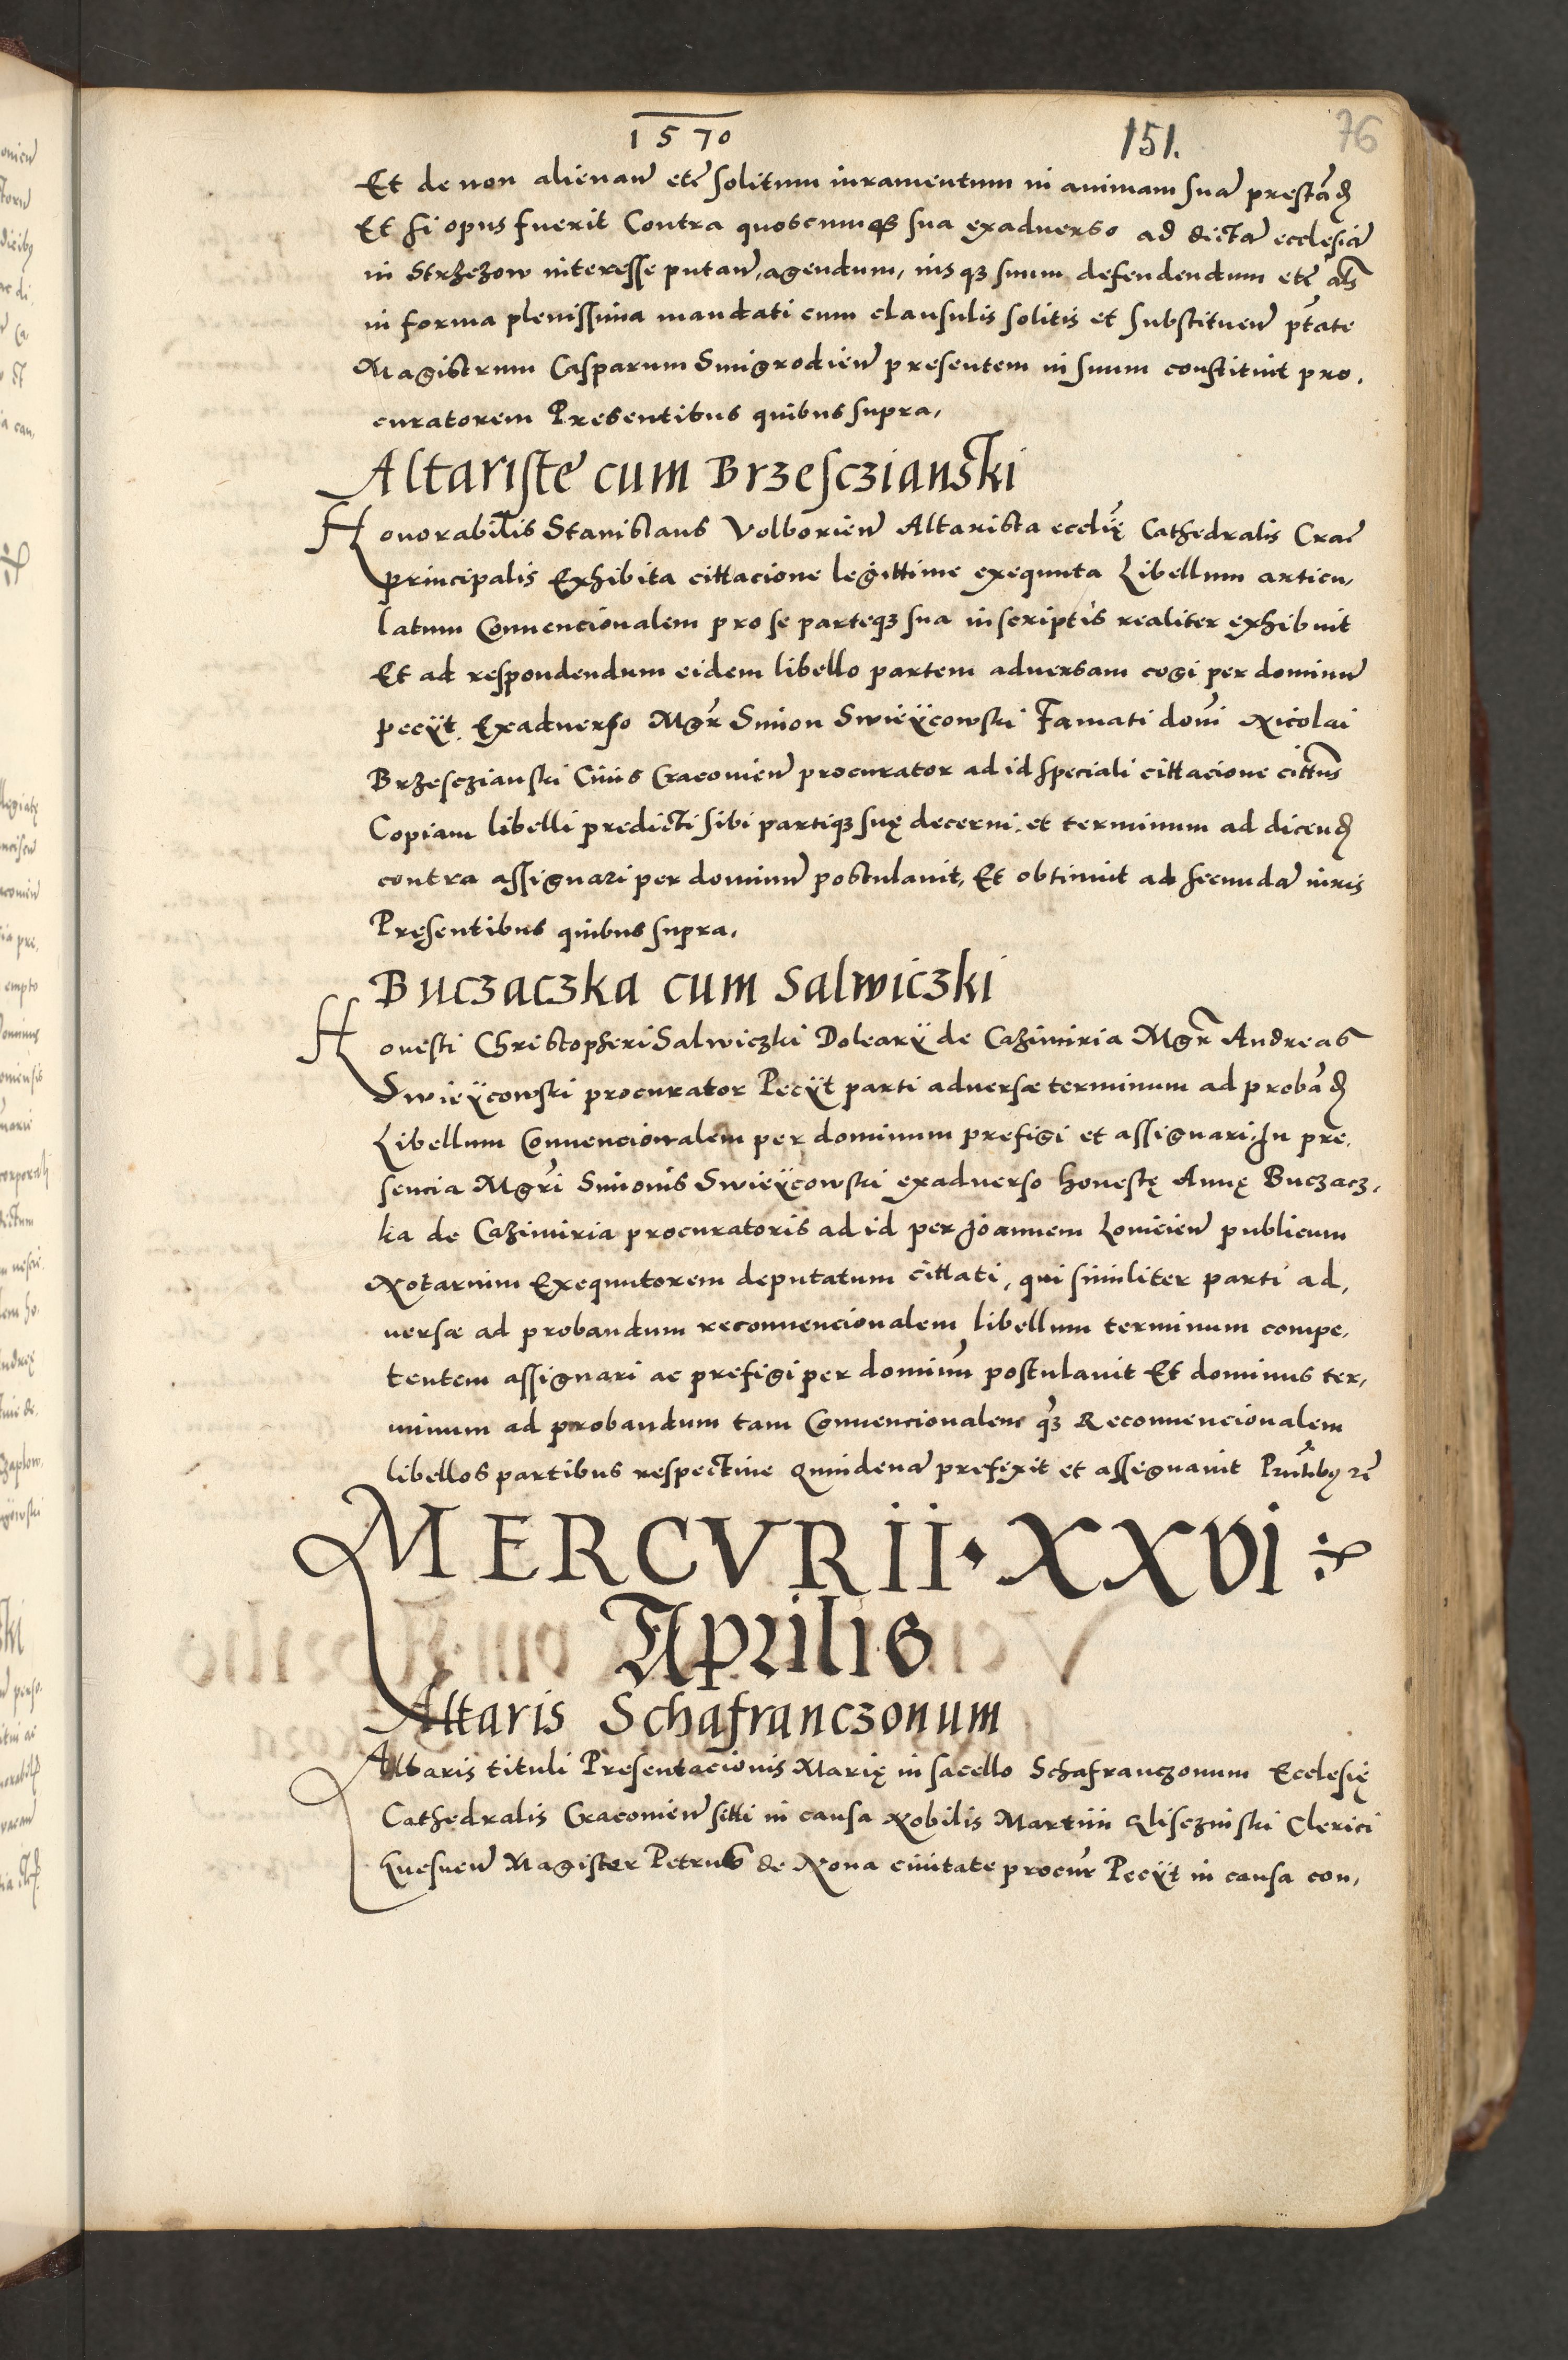 1570 151. 76
Et de non alienan̄ etc̄ solitum iuramentum in animam suā prestān̄d
Et si opus fuerit Contra quoscumq̨ sua exaduerso ad dictā ecclesiā
in Strzezow interesse putan̄, agendum, iusq̨ suum defendendum etc̄ als
in forma plenissima mandati cum clausulis solitis et substituen̄ ptāte
Magistrum Casparum Smigrodien̄ presentem in suum constituit pro,
curatorem Presentibus quibus supra,
Altariste cum Brzesczianski
Honorabilis Stanislaus Volborien̄ Altarista eccliȩ Cathedralis Crac̄
principalis Exhibita cittacione legittime exequuta Libellum articu,
latum Conuencionalem pro se parteq̨ sua in scriptis realiter exhibuit
Et ad respondendum eidem libello partem aduersam cogi per dominū
pecÿt. Exaduerso Mgr̄ Simon Swieÿcowski Famati dom̄i Nicolai
Brzesczianski Ciuis Cracouien̄ procurator ad id speciali cittacione cittus
Copiam libelli predicti sibi partiq̨ suȩ decerni, et terminum ad dicend
contra assignari per dominū postulauit, Et obtinuit ad secundā iuris
Presentibus quibus supra,
Buczaczka cum Salwiczki
Honesti Christopheri Salwiczki Dolearÿ de Cazimiria Mgr̄ Andreas
Swieÿcowski procurator Pecÿt parti aduersæ terminum ad probānd
Libellum Conuencionalem per dominum prefigi et assignari, In pre,
sencia Mgr̄i Simonis Swieÿcowski exaduerso honestȩ Annȩ Buczacz,
ka de Cazimiria procuratoris ad id per Joannem Louicien̄ publicum
Notarium Exequutorem deputatum cittati, qui similiter parti ad,
uersæ ad probandum reconuencionalem libellum terminum compe,
tentem assignari ac prefigi per dominū postulauit Et dominus ter,
minum ad probandum tam Conuencionalem q̨ Reconuencionalem
libellos partibus respectiue Quindenā prefixit et assignauit Pntibus rē
MERCVRII • XXVI
Aprilis
Altaris Schafranczonum
Altaris tituli Presentacionis Mariȩ in sacello Schafranczonum Ecclesiȩ
Cathedralis Cracouien̄ sitti in causa Nobilis Martini Clerici
Gnesnen̄ Magister Petrus de Noua ciuitate procur̄ Pecÿt in causa con,